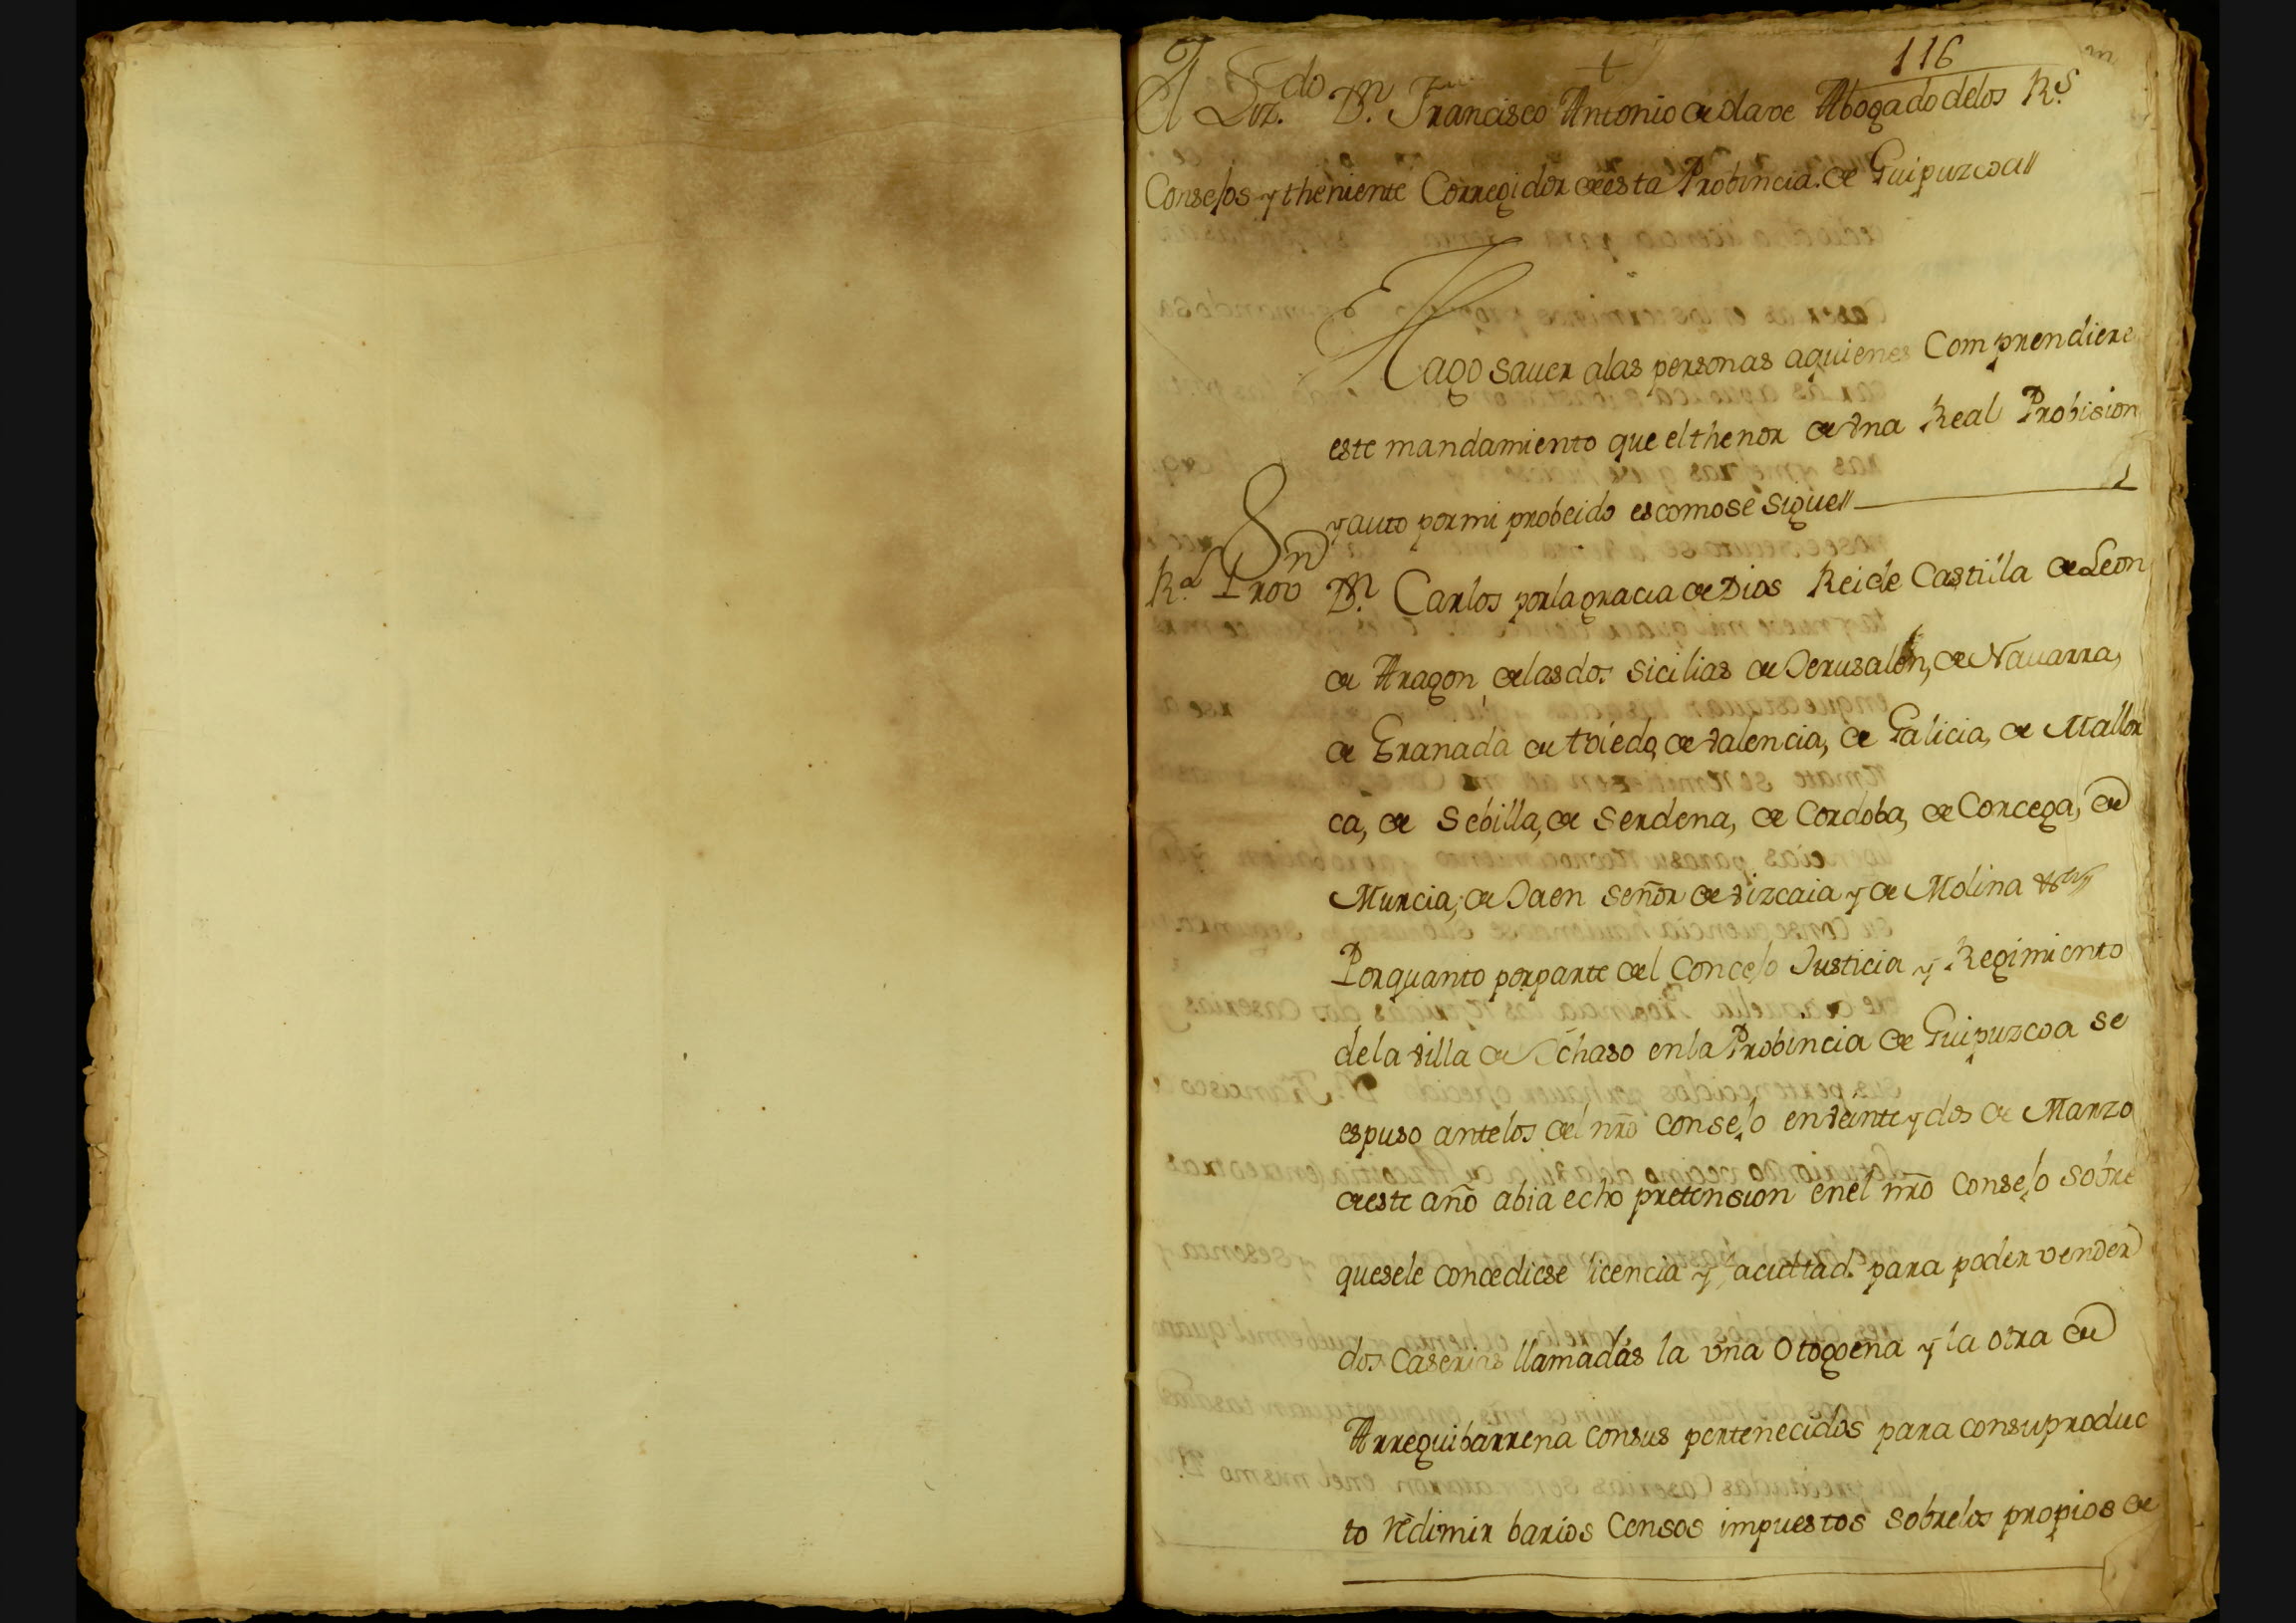 116
El Liz.do D.n Francisco Antonio de olave Abogado delos R.s
Consejos y theniente Corregidor de esta Probincia de Guipuzcoa//
Hago saver alas personas aquienes Comprendiere
este mandamiento que elthenor de vna Real Probision
y auto por mi probeido es como se sigue//
R.l Provn
D.n Carlos porlagracia de Dios Rei de Castilla de Leon
de Aragon delas dos Sicilias de Jerusalen, de Navarra,
de Granada de toledo, de valencia, de Galicia, de Mallor
ca, de Sebilla, de Serdena, de Cordoba, de Corcega, de
Murcia, de Jaen Señor de vizcaia y de Molina &ra//
Porquanto porparte del Concejo Justicia y Regimiento
dela villa de Ychaso enla Probincia de Guipuzcoa se
espuso antelos del nrõ Consejo en veinte y dos de Marzo
de este año abia echo pretension enel nrõ Consejo sobre
quesele concediese licencia y facultad para poder vender
dos Caserias llamadas la vna Otogoena y la otra de
Arreguibarrena consus pertenecidos para consuproduc
to redimir barios Censos impuestos sobrelos propios de